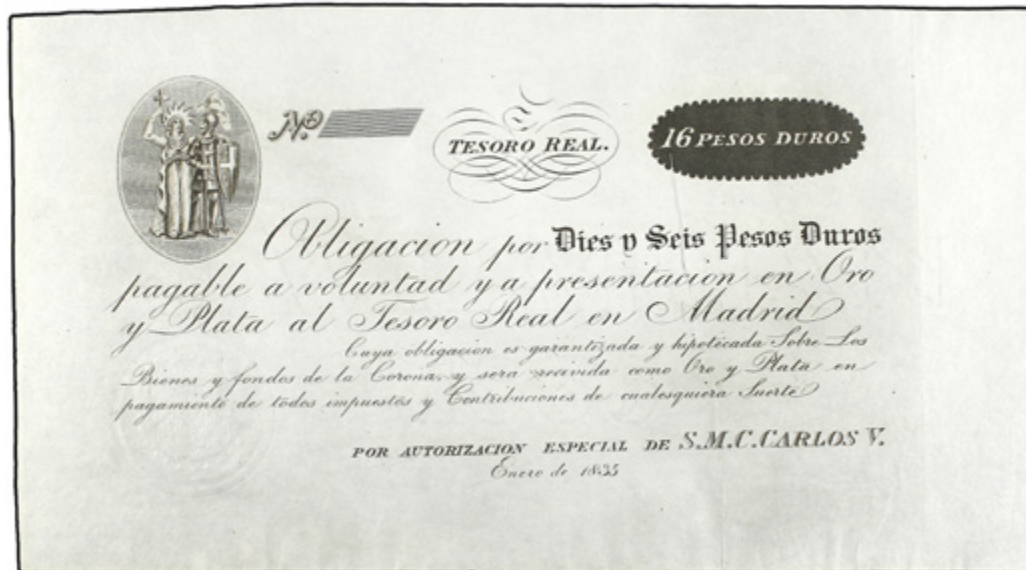 Nº
TESORO REAL.
16 PESOS DUROS
Obligacion por Dies y Seis Pesos Duros
pagable a voluntad y a presentacion en Oro
y Plata al Tesoro Real en Madrid
Cuya obligacion es garantizada y hipotecada Sobre Los
Bienes y fondos de la Corona, y sera recivida como Oro y Plata en
pagamiento de todos impuestos y Contribuciones de cualesquiera Suerte
POR AUTORIZACION ESPECIAL DE S.M.C. CARLOS V.
Enero de 1835